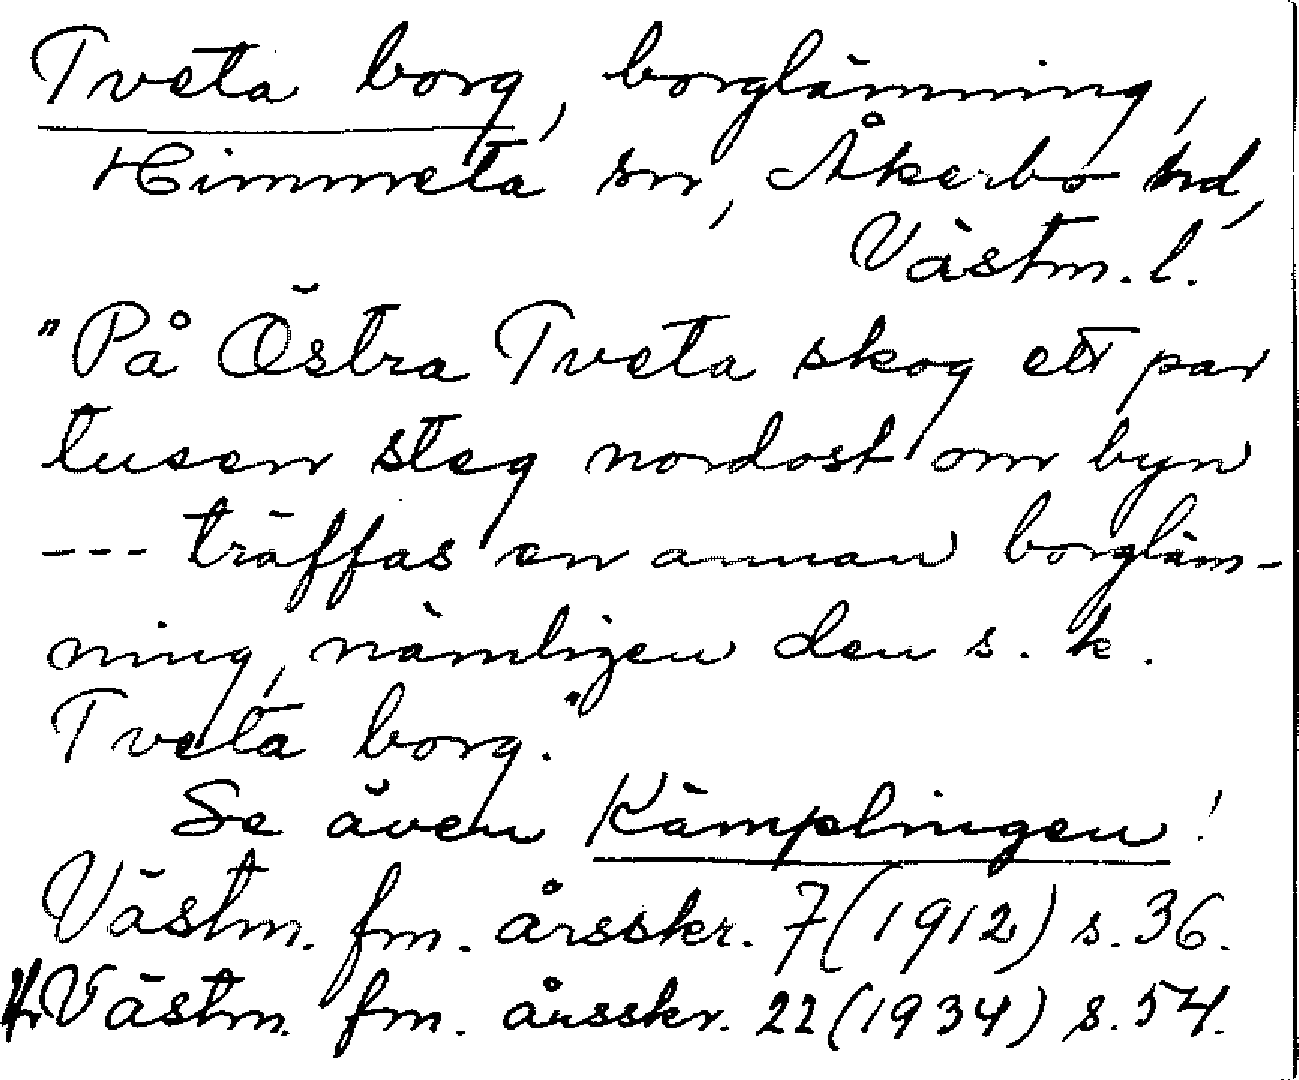 Tveta borg, borglämning,
Himmeta sn, Åkerbo hd,
Västm. l.
"På Östra Tveta skog ett par
tusen steg nordost om byn
--- träffas en annan borgläm-
ning, nämligen den s. k.
Tveta borg."
Se även Kämplingen!
Västm. fm. årsskr. 7 (1912) s. 36.
Västm. fm. årsskr. 22 (1934) s. 54.